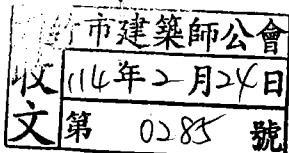 市建築師公會
收文
114年2月24日
第 0285 號